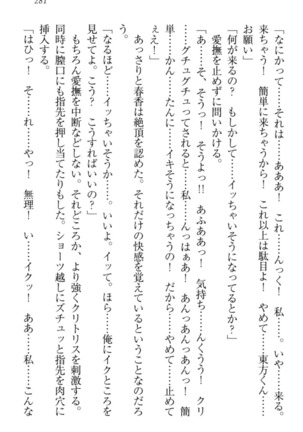 281
「なにかって……それは……あああ！　これ……んっく！　私……。いや……来る。
来ちゃう！　簡単に来ちゃうから！　これ以上は駄目よ！　やめて……東方くん……
お願い」
「何が来るの？　もしかして……イッちゃいそうになってるとか？」
愛撫を止めずに問いかける。
「あ……そ、そうっ！　そうよっ!!　あふああっ！　気持ち……んくうう！　クリ
……グチュグチュってされると……私……んっはぁあ！　あんっあんっあんっ！　簡
単……かん……たんに……イキそうになっちゃうの！　だから……やめて……止めて
ぇぇ！」
あっさりと春香は絶頂を認めた。それだけの快感を覚えているということなのだろ
う。
「なるほど……イッちゃいそうか……。いいよ。イッて。ほら……俺にイクところを
見せてよ。こう？　こうすればいいの？」
もちろん愛撫を中断などしない。それどころか、より強くクリトリスを刺激する。
同時に膣口にも指先を押し当てたりもした。ショーツ越しにズチュッと指先を肉穴に
挿入する。
「はひっ！　そ……それ……やっ！　無理！　い……イクッ！　ああ……私……こんな